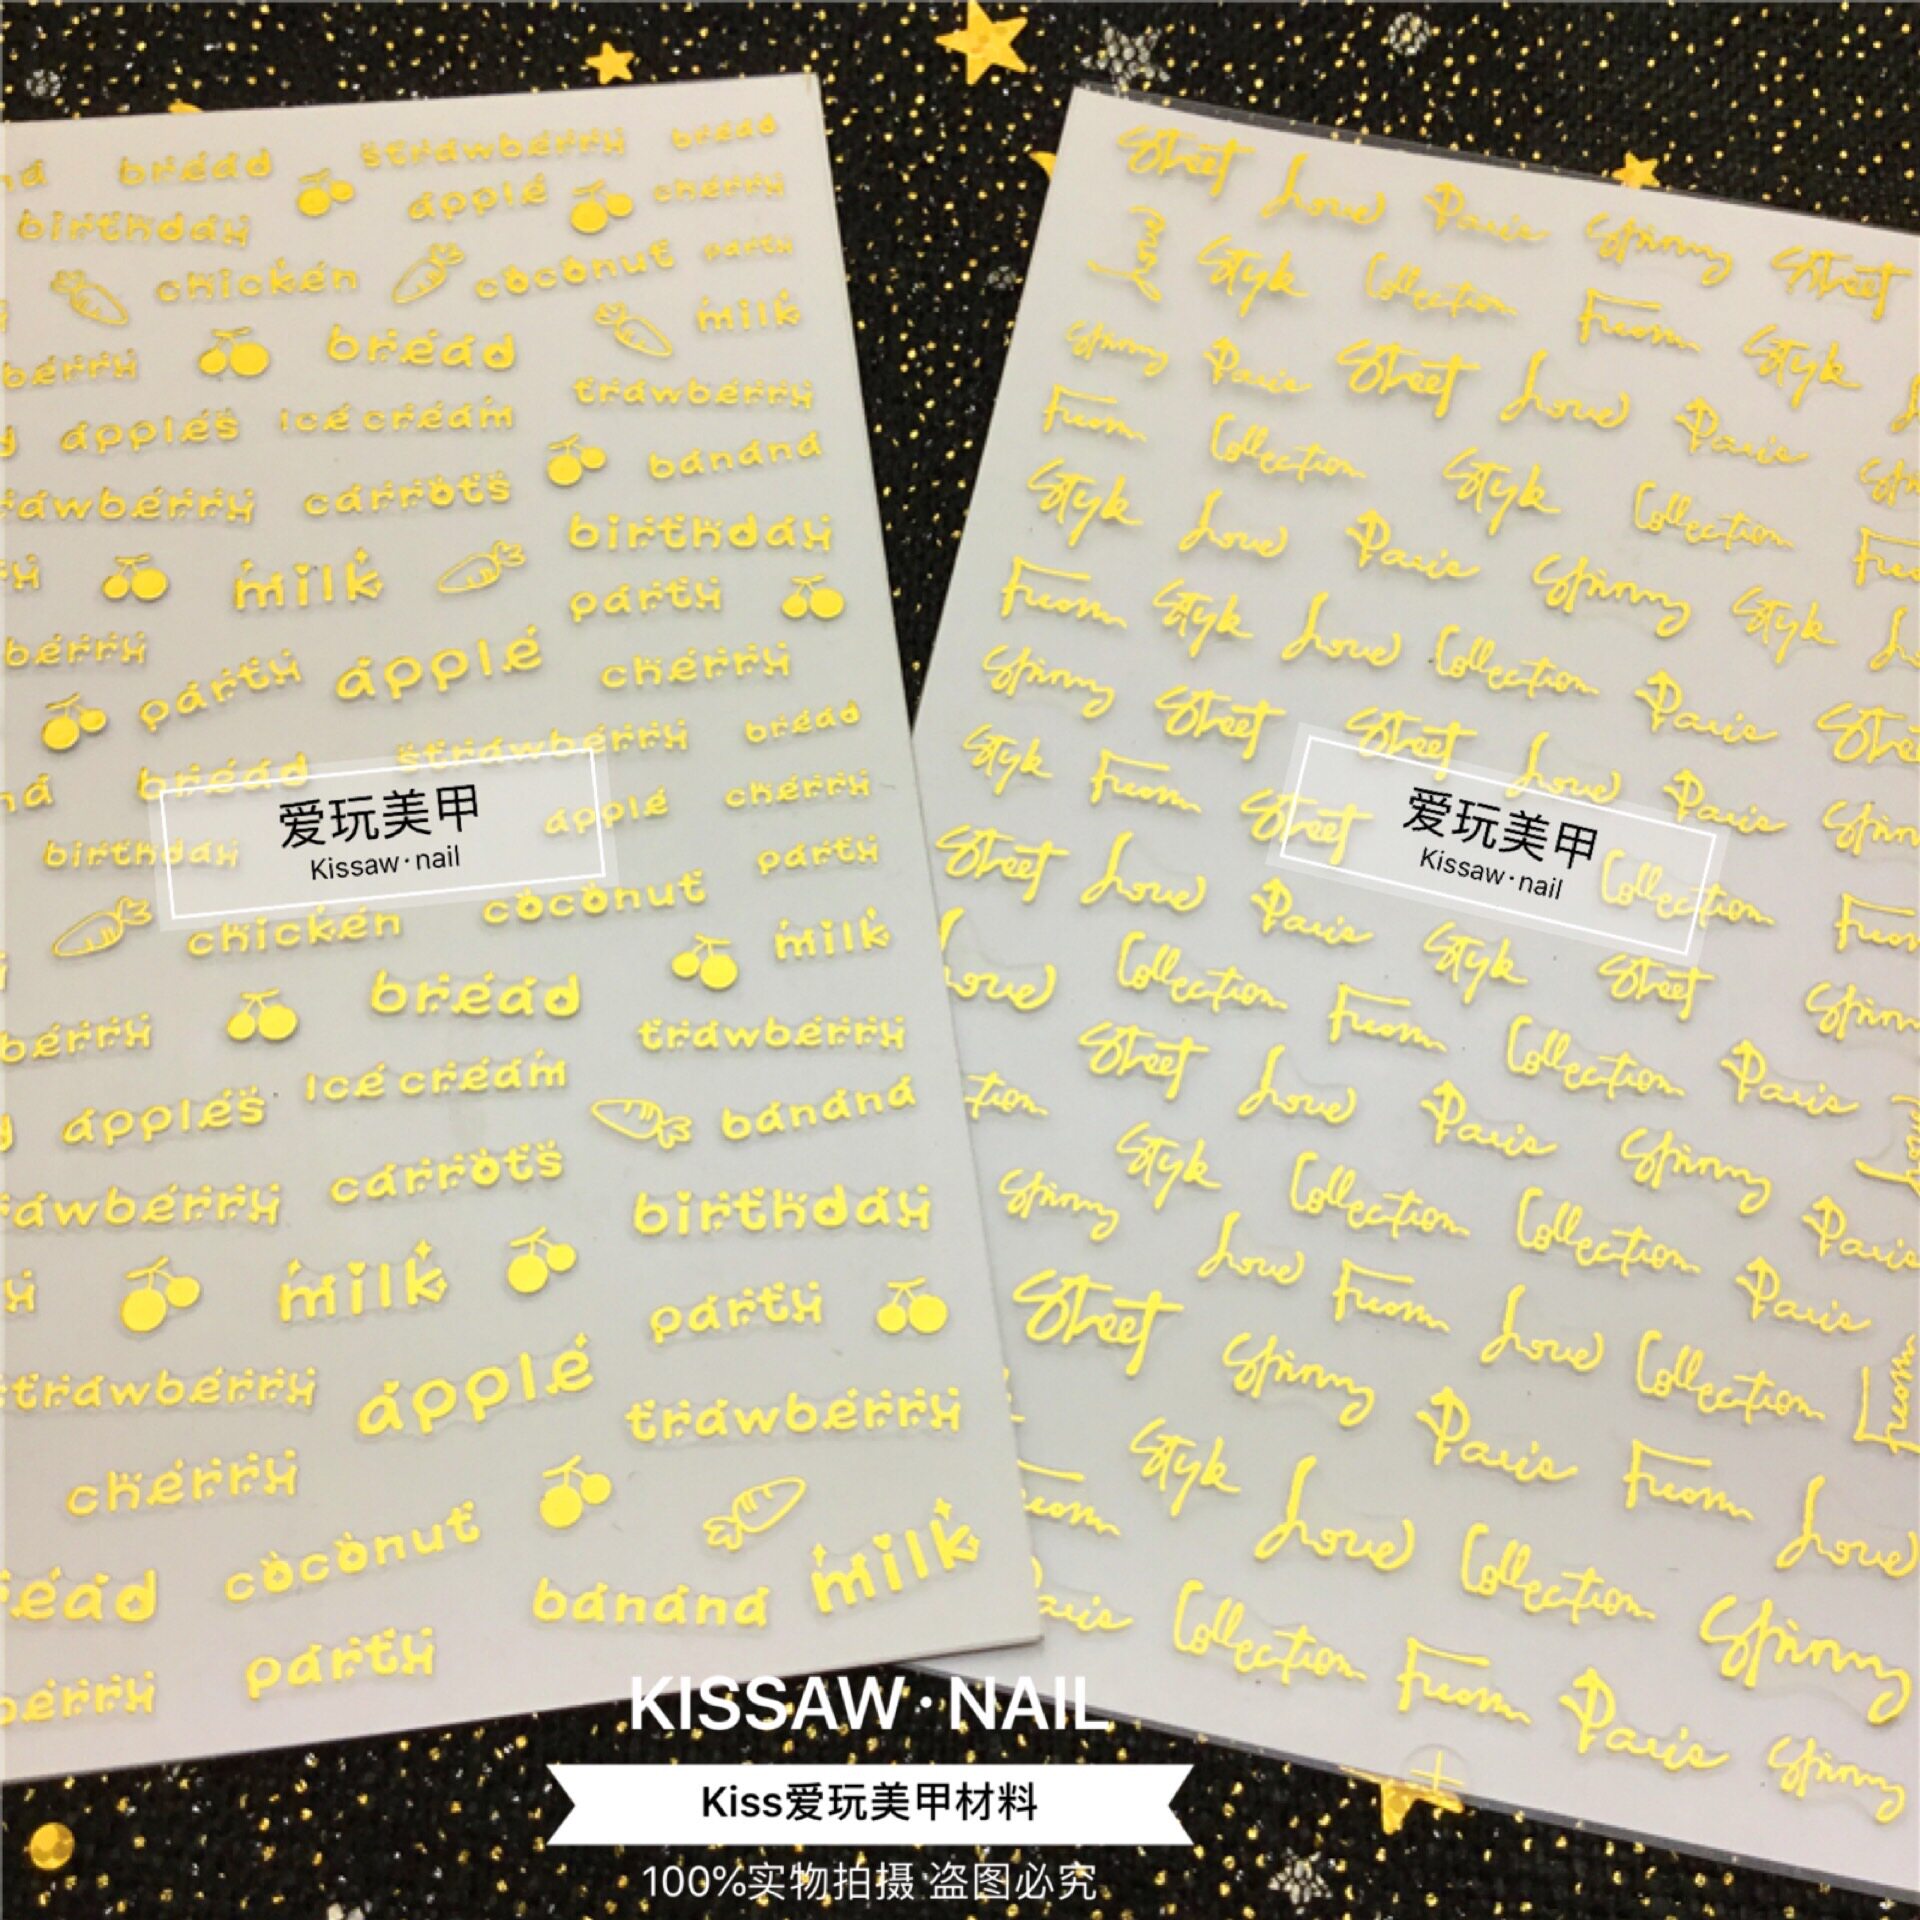 na bread strawberry bread
birthday apple cherry
chicken coconut party
berry bread milk
y apples Ice cream trawberry
rawberry carrots banana
milk birthday
party
berry party apple cherry
na bread strawberry bread
birthday apple cherry
party
爱玩美甲
Kissaw·nail
chicken coconut milk
berry bread trawberry
y apples Ice cream banana
rawberry carrots birthday
milk party
trawberry apple trawberry
cherry
read coconut banana milk
berry party
Street Love Paris Spinny Street
Love Style Collection From Style
Spinny Paris Street Love Paris
From Collection Style Collection
Style Love Paris Spinny Style
From Style Love Collection Paris
Spinny Street Street Love Paris
Style From Street Collection
爱玩美甲
Kissaw·nail
Street Love Paris Style Street
Love Collection From Collection Paris
tion Street Love Paris Spinny Paris
Spinny Style Collection Collection Paris
Love From Love Collection From
Street Spinny Paris From Love
Style Love Collection Spinny
aris Collection From Paris Spinny
KISSAW·NAIL
Kiss爱玩美甲材料
100%实物拍摄·盗图必究